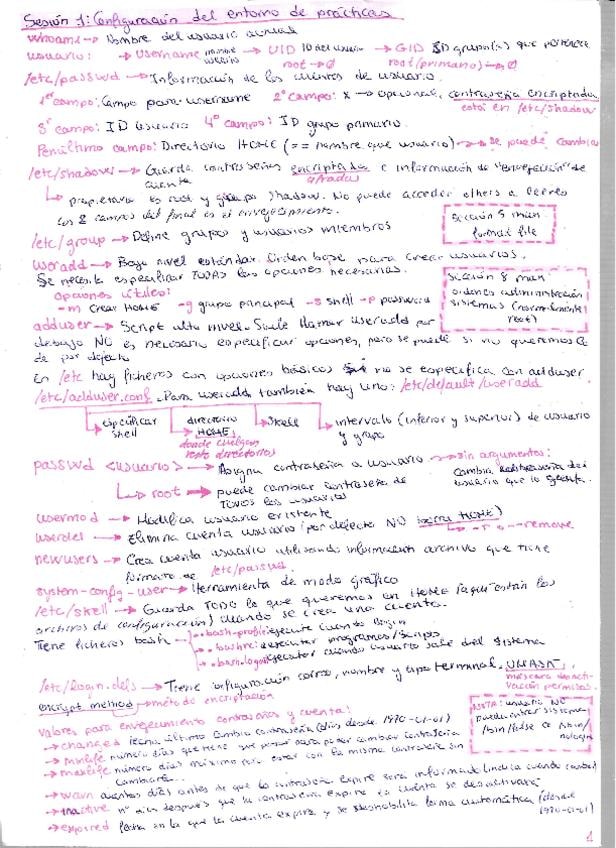 Sesión 1: Configuración del entorno de prácticas
whoami → Nombre del usuario actual
usuario: → Username nombre usuario → UID ID del usuario → GID ID grupo(s) que pertenece
root → 0 root (primario) → 0
/etc/passwd → Información de las cuentas de usuario.
1er campo: Campo para username 2º campo: x → opcional, contraseña encriptada
está en /etc/shadow
3er campo: ID usuario 4º campo: ID grupo primario.
Penúltimo campo: Directorio HOME (== nombre que usuario) → se puede cambiar
/etc/shadow → Guarda contraseñas encriptadas e información de "envejecimiento" de
cuenta
↳ propietario es root y grupo shadow. No puede acceder others a leerlo
Los campos del final es el envejecimiento.
/etc/group → Define grupos y usuarios miembros
Sección 5 man
format file
useradd → Bajo nivel estándar. Orden base para crear usuarios.
Se necesita especificar TODAS las opciones necesarias.
Sección 8 man
ordenes administración
sistemas (normalmente
root)
Opciones útiles:
-m crear HOME -g grupo principal -s shell -p password
adduser → Script alto nivel. Suele llamar useradd por
debajo NO es necesario especificar opciones, pero se puede si no queremos la
de por defecto
En /etc hay ficheros con opciones básicas si no se especifica con adduser
/etc/adduser.conf. Para useradd también hay uno: /etc/default/useradd
especificar shell
directorio HOME, donde cuelgan resto directorios
skell
intervalo (inferior y superior) de usuario y grupo
passwd <usuario> → Asigna contraseña a usuario → sin argumentos:
cambia contraseña del usuario que lo
↳ root → puede cambiar contraseña de
TODOS los usuarios
usermod → Modifica usuario existente
userdel → Elimina cuenta usuario (por defecto NO borra HOME)
→ -r o --remove
newusers → Crea cuenta usuario utilizando información archivo que tiene
formato de /etc/passwd.
system-config-user → Herramienta de modo gráfico
/etc/skell → Guarda TODO lo que queremos en HOME (aquí están los
archivos de configuración) cuando se crea una cuenta.
Tiene ficheros bash
.bash-profile: ejecute cuando login
.bashrc: ejecutar programas/scripts
.bash-logout: ejecutar cuando usuario sale del sistema
/etc/login.defs → Tiene configuración correo, nombre y tipo terminal, UMASK,
máscara de activación permisos.
encrypt method → método encriptación
NOTA: usuario NO
puede entrar sistema
/bin/false o /sbin/
nologin
Valores para envejecimiento contraseñas y cuenta:
→ changed fecha último cambio contraseña (días desde 1970-01-01)
→ minlife número días que tiene que pasar para poder cambiar contraseña
→ maxlife número días máximo para estar con la misma contraseña sin
cambiarla.
→ warn cuantos días antes de que la contraseña expire será informado
→ inactive nº días después que la contraseña expire la cuenta se desactivará
→ expired fecha en la que la cuenta expira y se deshabilita forma automática (desde
1970-01-01)
1